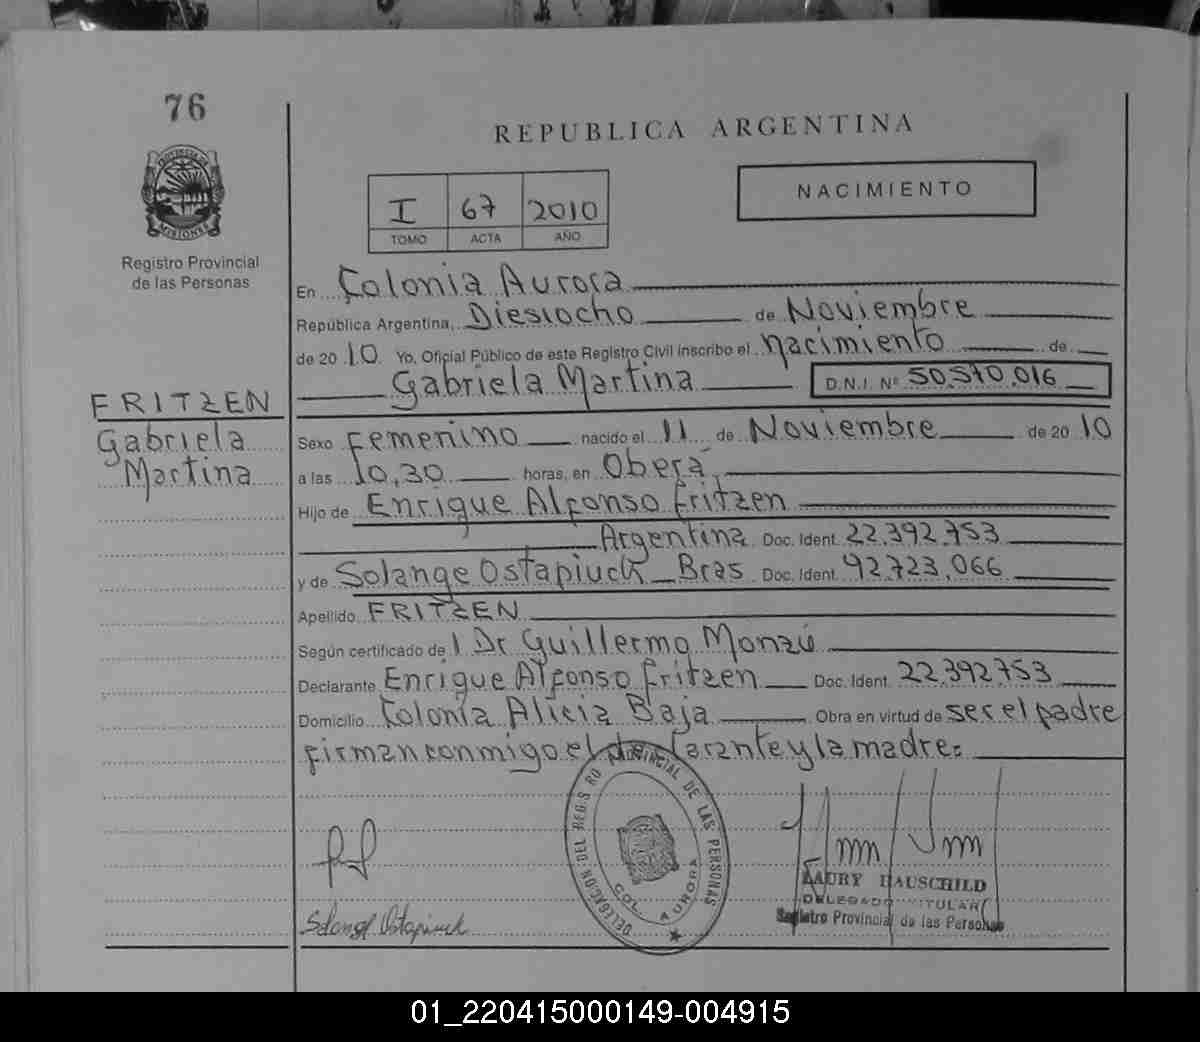 76
REPUBLICA ARGENTINA
PROVINCIA DE
MISIONES
Registro Provincial
de las Personas
I 67 2010
TOMO ACTA AÑO
NACIMIENTO
En Colonia Aurora
República Argentina, Diesiocho de Noviembre
de 20 10 Yo, Oficial Público de este Registro Civil inscribo el nacimiento de
Gabriela Martina D.N.I. Nº 50.570.016
FRITZEN
Gabriela
Martina
Sexo Femenino nacido el 11 de Noviembre de 20 10
a las 10,30 horas, en Oberá
Hijo de Enrique Alfonso Fritzen
Argentina Doc. Ident. 22.392.753
y de Solange Ostapiuck Bras Doc. Ident. 92.723.066
Apellido FRITZEN
Según certificado de l Dr Guillermo Monzú
Declarante Enrique Alfonso Fritzen Doc. Ident. 22.392.753
Domicilio Colonia Alicia Baja Obra en virtud de ser el padre
firman conmigo el declarante y la madre.
DELEGACION DEL REGISRO PROVINCIAL DE LAS PERSONAS
COL. AURORA
Solange Ostapiuck
LAURY HAUSCHILD
DELEGADO TITULAR
Registro Provincial de las Personas
01_220415000149-004915